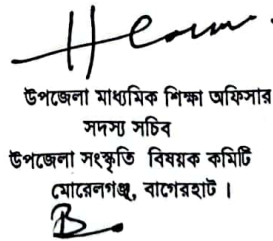 উপজেলা মাধ্যমিক শিক্ষা অফিসার
সদস্য সচিব
উপজেলা সংস্কৃতি বিষয়ক কমিটি
মোরেলগঞ্জ, বাগেরহাট ।